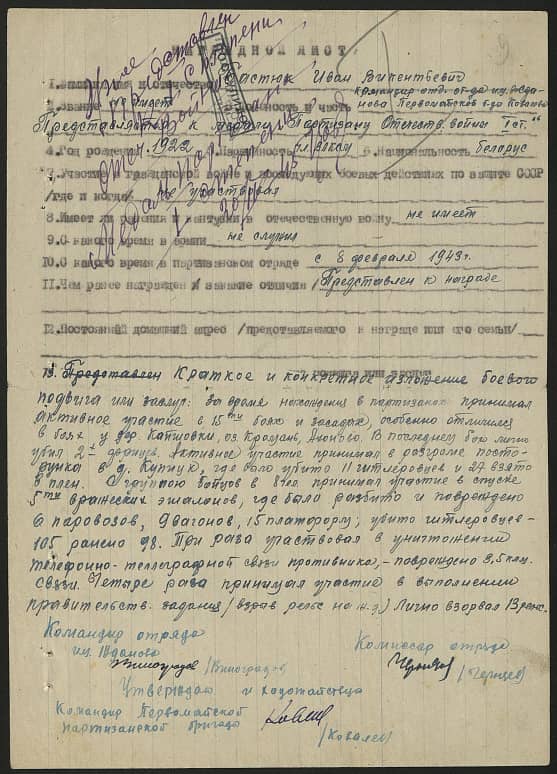 НАГРАДНОЙ ЛИСТ
9
1. Фамилия, имя и отчество Костюк Иван Викентьевич
2. Звание партизан 3. Должность и часть командир отд. от-да им. Жданова Первомайской б-ды
Представляется к медали "Партизану Отечеств. войны I ст."
4. Год рождения 1922 5. Партийность 6. Национальность беларус
7. Участие в гражданской войне и последующих боевых действиях по защите СССР
/где и когда/ не участвовал
8. Имеет ли ранения и контузии в отечественную войну не имеет
9. С какого время в армии не служил
10. С какого время в партизанском отряде с 8 февраля 1943 г.
11. Чем ранее награжден / звание отличия / Представлен к награде
12. Постоянный домашний адрес /представляемого к награде или его семьи/
13. Представлен Краткое и конкретное изложение боевого
подвига или заслуг: За время нахождения в партизанах принимал
активное участие в 15ти боях и засадах, особенно отличился
в боях у дер. В последнем бою лично
убил 2х немцев. Активное участие принимал в разгроме посте-
рунка в д. где было убито 11 гитлеровцев и 27 взято
в плен. С группою бойцов в 8 чел. принимал участие в спуске
5ти вражеских эшалонов, где было разбито и повреждено
6 паровозов, 9 вагонов, 15 платформ; убито гитлеровцев-
105 ранено 98. Три раза участвовал в уничтожении
телефонно-теллеграфной связи противника, - повреждено 3,5 клм.
связи. Четыре раза принимал участие в выполнении
правительств. задания /взрыв рельс на ж.д./ Лично взорвал 13 рельс.
Командир отряда
им. Жданова
/Виноградов/
Комиссар отряда
Утверждаю и ходотайствую
Командир Первомайской
партизанской бригады
/Ковалев/